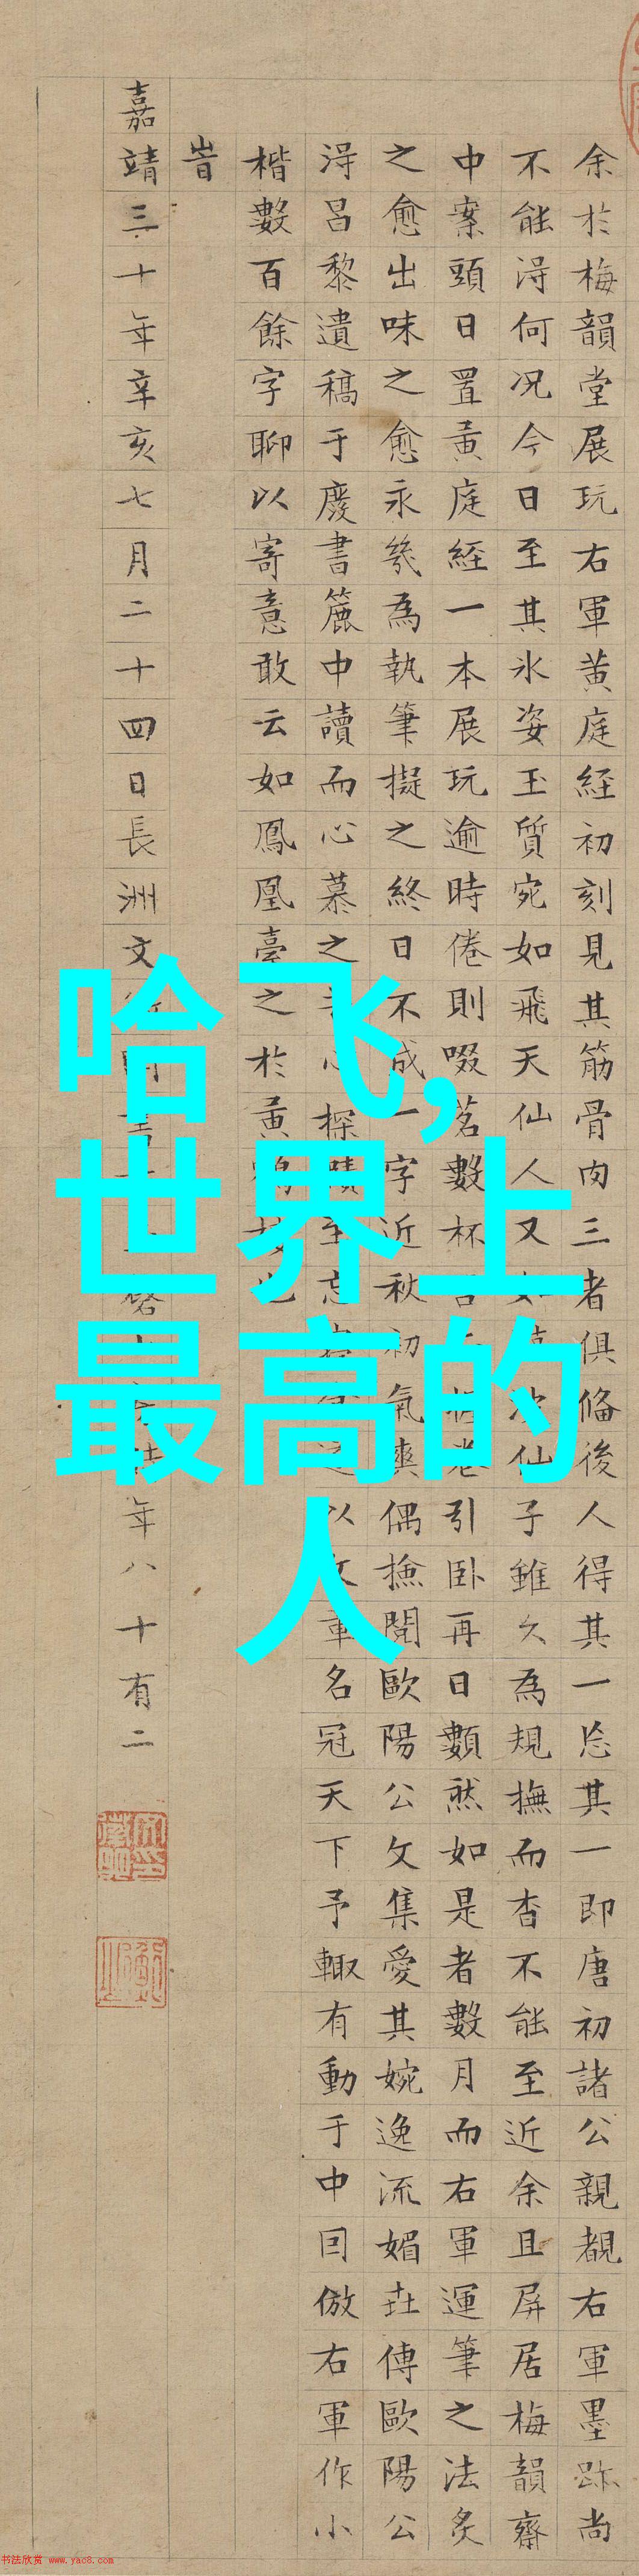 余於梅韻堂展玩右軍黃庭経初刻見其筋骨肉三者俱俻後人得其一忘其一即唐初諸公親覩右軍墨跡尚
不能淂何况今日至其氷姿玉質宛如飛天仙人又如仙子雖久為規撫而杳不能至近余且屏居梅韻齋
中案頭日置黃庭経一本展玩逾時倦則啜茗數杯引卧再日數然如是者數月而右軍運筆之法炙
之愈出味之愈永幾為執筆擬之終日不成一字近秋初氣爽偶撿閱歐陽公文集愛其婉逸流媚世傳歐陽公
淂昌黎遺稿于廢書簏中讀而心慕之探賾至忘以文章名冠天下予輙有動于中囙倣右軍作小
楷數百餘字聊以寄意敢云如鳳凰臺之於黃也
旹
嘉靖三十年辛亥七月二十四日長洲文年八十有二
哈飞,
世界上
最高的
人
书法欣赏 www.yac8.com